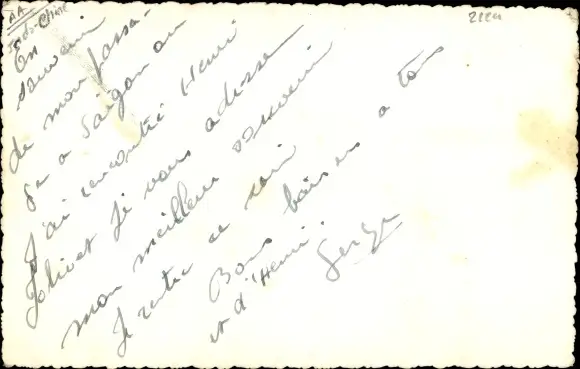 AA
Indo-Chine
2224
En
souvenir
de mon passa-
ge a Saïgon ou
J'ai rencontré Henri
Jolivet Je vous adresse
mon meilleur souvenir
Je rentre ce soir
Bons baisers a tous
et d'Henri.
Serge